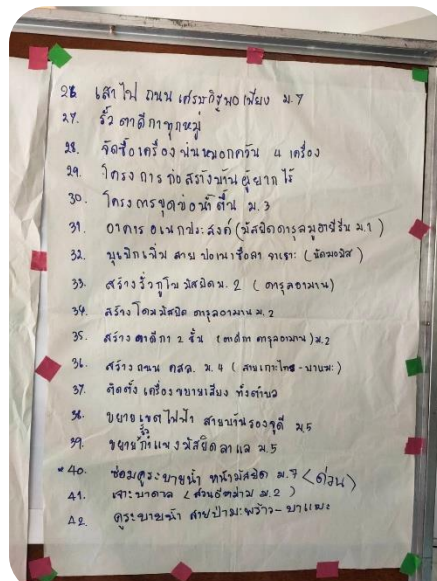 26. เสาไฟ ถนน เศรษฐกิจพอเพียง ม.7
27. รั้ว ตาดีกาทุกหมู่
28. จัดซื้อเครื่องพ่นหมอกควัน 4 เครื่อง
29. โครงการก่อสร้างบ้านผู้ยากไร้
30. โครงการขุดบ่อน้ำตื้น ม.3
31. อาคารอเนกประสงค์ (มัสยิดดารุลมูฮายีรีน ม.1)
32. บุเบิกเส้น สาย
33. สร้างรั้วกูโบ มัสยิด ม. 2 (ดารุลอามาน)
34. สร้างโดมมัสยิด ดารุลอามาน ม.2
35. สร้างตาดีกา 2 ชั้น (ตาดีกา ดารุลอามาน) ม.2
36. สร้าง ถนน คสล. ม.4 (สายเกาะไทย - บาแมะ)
37. ติดตั้ง เครื่องขยายเสียง ทั้งตำบล
38. ขยายเขตไฟฟ้า สายบ้านรองจูดี ม.5
39. ขยายรั้วกำแพงมัสยิดลาแล ม.5
*40. ซ่อมคูระบายน้ำ หน้ามัสยิด ม.7 (ด่วน)
41. เจาะบาดาล ม.2)
42. คูระบายน้ำ สายป่ามะพร้าว - บาแมะ